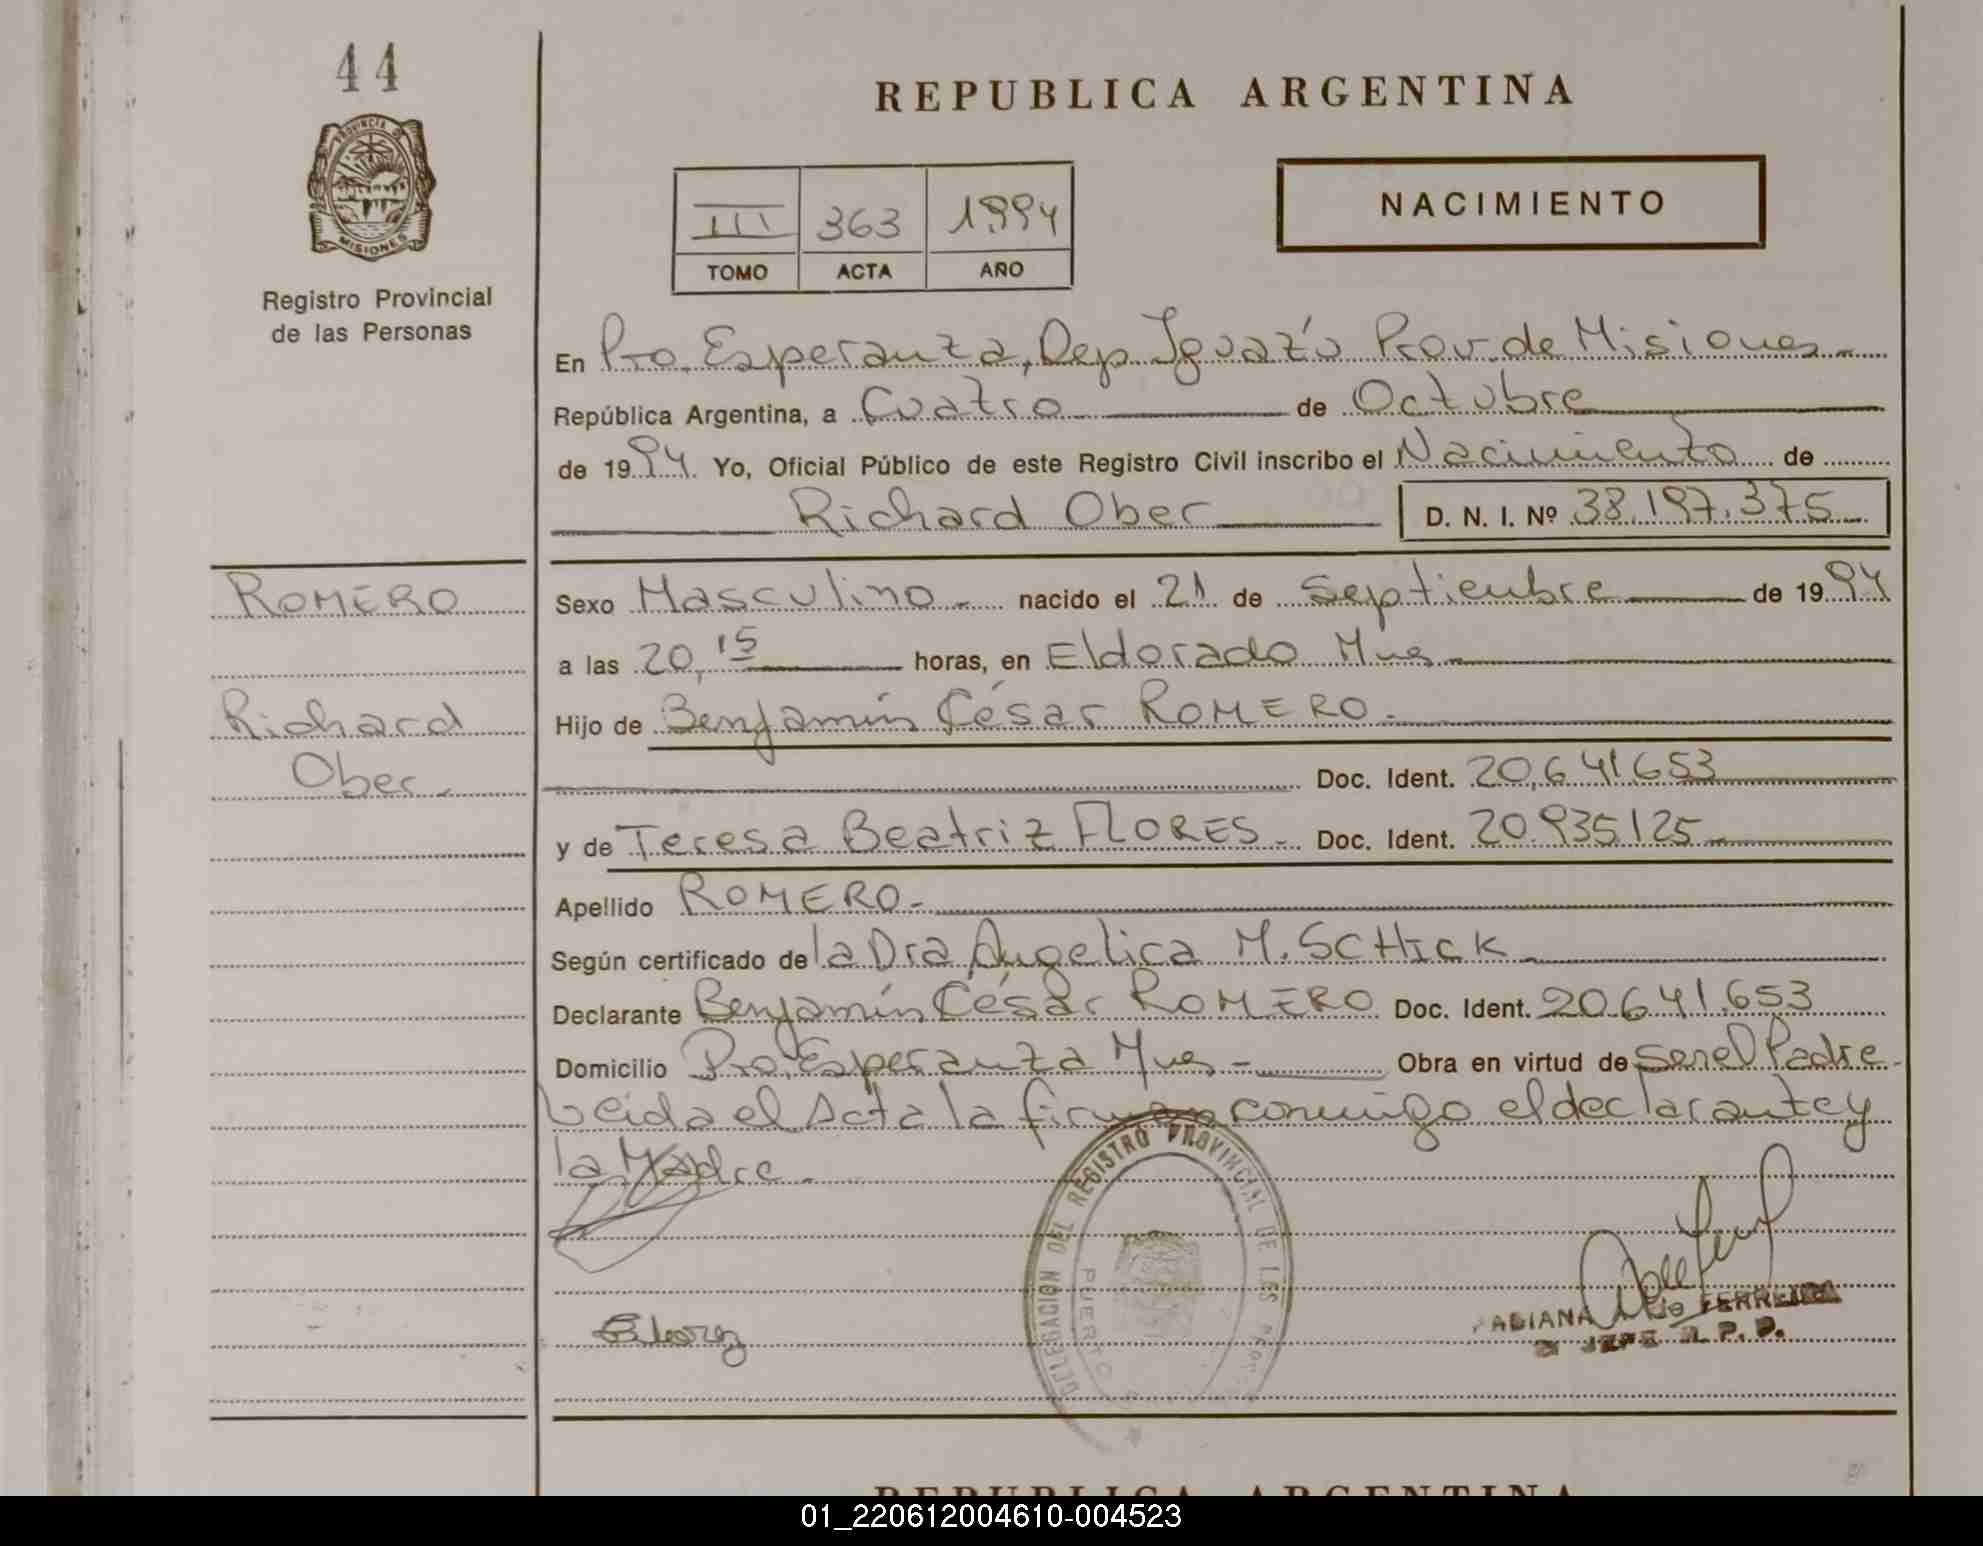 44
PROVINCIA DE
MISIONES
Registro Provincial
de las Personas
REPUBLICA ARGENTINA
NACIMIENTO
III 363 1994
TOMO ACTA AÑO
En Pto. Esperanza, Dep. Iguazú Prov. de Misiones
República Argentina, a Cuatro de Octubre
de 1994. Yo, Oficial Público de este Registro Civil inscribo el Nacimiento de
Richard Ober D. N. I. Nº 38.197.375
ROMERO
Richard
Ober.
Sexo Masculino nacido el 21 de Septiembre de 1994
a las 20,15 horas, en Eldorado Mnes
Hijo de Benjamín César ROMERO.
Doc. Ident. 20.641653
y de Teresa Beatriz FLORES Doc. Ident. 20.935.125
Apellido ROMERO.
Según certificado de la Dra Angelica M. SCHICK
Declarante Benjamín César ROMERO Doc. Ident. 20.641.653
Domicilio Pto. Esperanza Mnes Obra en virtud de ser el Padre.
Leida el Acta la firman conmigo el declarante y
la Madre.
DELEGACION DEL REGISTRO PROVINCIAL DE LAS
PUERTO
FERREIRA
REPUBLICA ARGENTINA
01_220612004610-004523